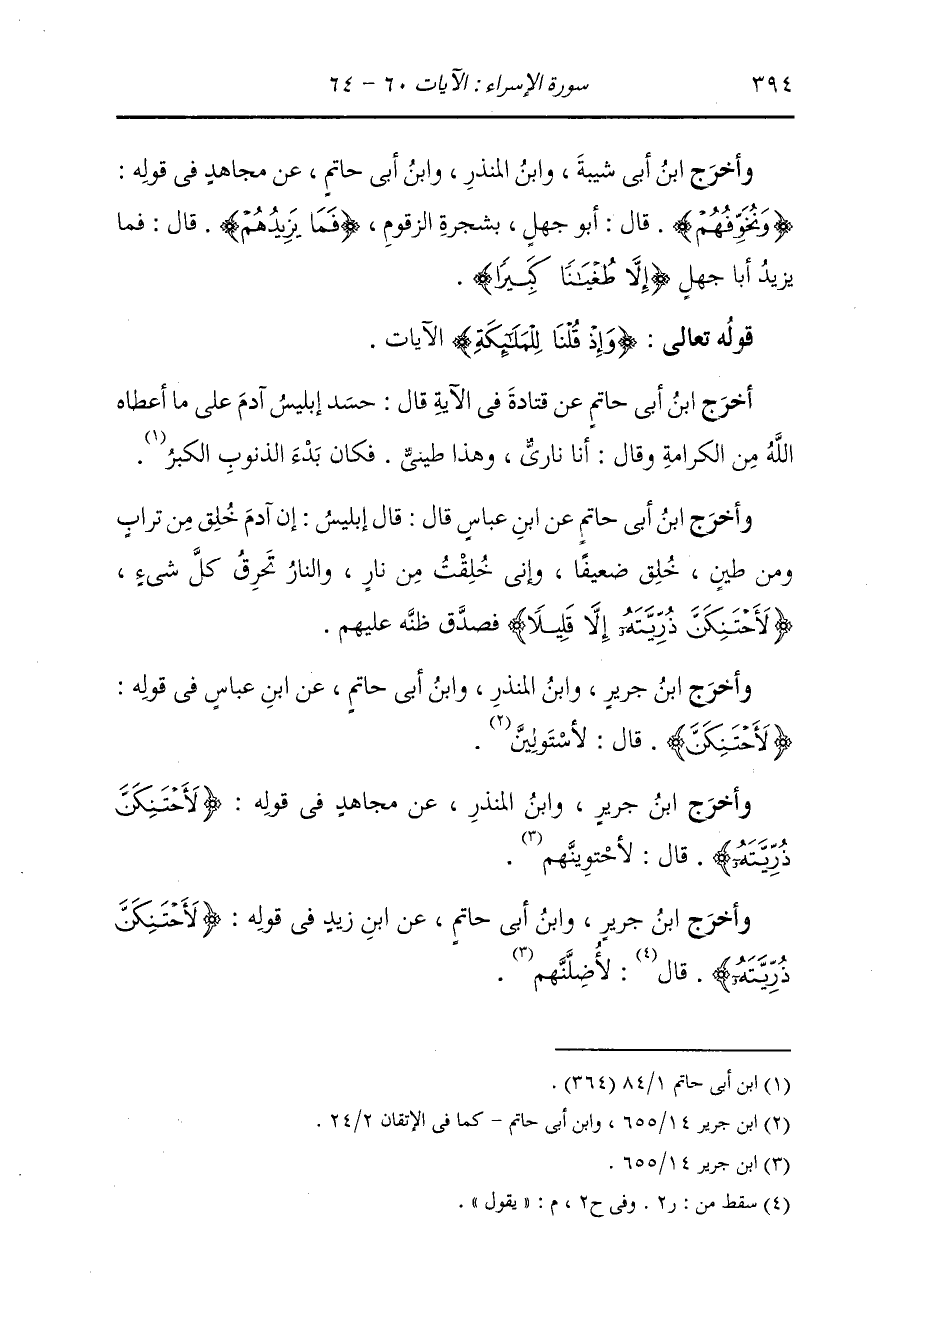 ٣٩٤ سورة الإسراء : الآيات ٦٠ - ٦٤
وأخرَج ابنُ أبى شيبةَ ، وابنُ المنذرِ ، وابنُ أبى حاتمٍ ، عن مجاهدٍ فى قولِه :
﴿وَنُخَوِّفُهُمْ﴾ . قال : أبو جهلٍ ، بشجرةِ الزقومِ ، ﴿فَمَا يَزِيدُهُمْ﴾ . قال : فما
يزيدُ أبا جهلٍ ﴿إِلَّا طُغْيَـٰنًا كَبِيرًا﴾ .
قولُه تعالى : ﴿وَإِذْ قُلْنَا لِلْمَلَـٰٓئِكَةِ﴾ الآيات .
أخرَج ابنُ أبى حاتمٍ عن قتادةَ فى الآيةِ قال : حسَد إبليسُ آدمَ على ما أعطاه
اللَّهُ مِن الكرامةِ وقال : أنا نارىٌّ ، وهذا طينىٌّ . فكان بَدْءَ الذنوبِ الكبرُ(١).
وأخرَج ابنُ أبى حاتمٍ عن ابنِ عباسٍ قال : قال إبليسُ : إن آدمَ خُلِق مِن ترابٍ
ومن طينٍ ، خُلِق ضعيفًا ، وإنى خُلِقْتُ مِن نارٍ ، والنارُ تَحرِقُ كلَّ شىءٍ ،
﴿لَأَحْتَنِكَنَّ ذُرِّيَّتَهُۥٓ إِلَّا قَلِيلًا﴾ فصدَّق ظنَّه عليهم .
وأخرَج ابنُ جريرٍ ، وابنُ المنذرِ ، وابنُ أبى حاتمٍ ، عن ابنِ عباسٍ فى قولِه :
﴿لَأَحْتَنِكَنَّ﴾ . قال : لأسْتَولِيَنَّ(٢) .
وأخرَج ابنُ جريرٍ ، وابنُ المنذرِ ، عن مجاهدٍ فى قولِه : ﴿لَأَحْتَنِكَنَّ
ذُرِّيَّتَهُۥٓ﴾ . قال : لأحْتوِينَّهم(٣) .
وأخرَج ابنُ جريرٍ ، وابنُ أبى حاتمٍ ، عن ابنِ زيدٍ فى قولِه : ﴿لَأَحْتَنِكَنَّ
ذُرِّيَّتَهُۥٓ﴾ . قال(٤) : لأُضِلَّنَّهم(٣) .
(١) ابن أبى حاتم ٨٤/١ (٣٦٤) .
(٢) ابن جرير ٦٥٥/١٤ ، وابن أبى حاتم - كما فى الإتقان ٢٤/٢ .
(٣) ابن جرير ٦٥٥/١٤ .
(٤) سقط من : ر٢ . وفى ح٢ ، م : « يقول » .